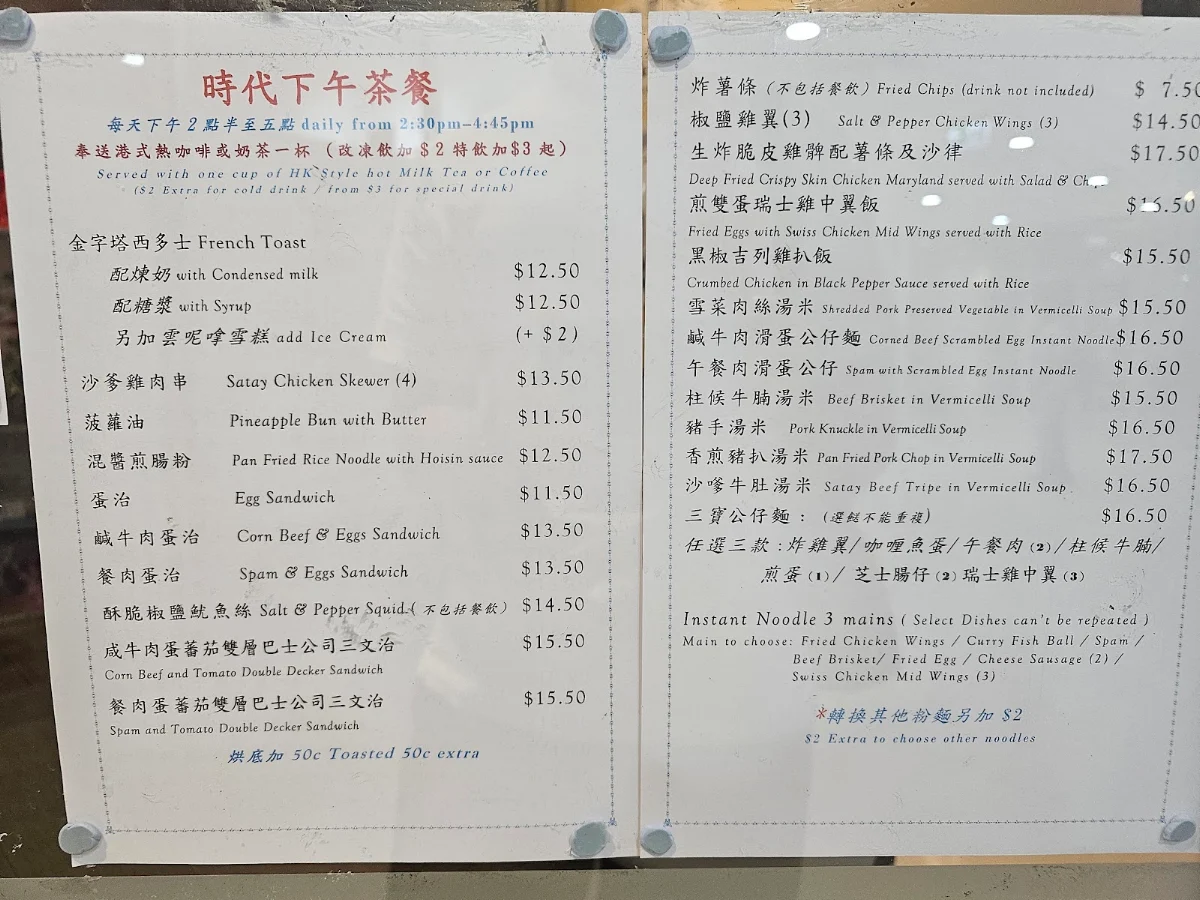 時代下午茶餐
每天下午2點半至五點 daily from 2:30pm–4:45pm
奉送港式熱咖啡或奶茶一杯 (改凍飲加$2特飲加$3起)
Served with one cup of HK Style hot Milk Tea or Coffee
($2 Extra for cold drink / from $3 for special drink)
金字塔西多士 French Toast
配煉奶 with Condensed milk $12.50
配糖漿 with Syrup $12.50
另加雲呢嗱雪糕 add Ice Cream (+ $2)
沙爹雞肉串 Satay Chicken Skewer (4) $13.50
菠蘿油 Pineapple Bun with Butter $11.50
混醬煎腸粉 Pan Fried Rice Noodle with Hoisin sauce $12.50
蛋治 Egg Sandwich $11.50
鹹牛肉蛋治 Corn Beef & Eggs Sandwich $13.50
餐肉蛋治 Spam & Eggs Sandwich $13.50
酥脆椒鹽魷魚絲 Salt & Pepper Squid (不包括餐飲) $14.50
咸牛肉蛋蕃茄雙層巴士公司三文治 $15.50
Corn Beef and Tomato Double Decker Sandwich
餐肉蛋蕃茄雙層巴士公司三文治 $15.50
Spam and Tomato Double Decker Sandwich
烘底加 50c Toasted 50c extra
炸薯條 (不包括餐飲) Fried Chips (drink not included) $ 7.50
椒鹽雞翼(3) Salt & Pepper Chicken Wings (3) $14.50
生炸脆皮雞髀配薯條及沙律 $17.50
Deep Fried Crispy Skin Chicken Maryland served with Salad &
煎雙蛋瑞士雞中翼飯 $16.50
Fried Eggs with Swiss Chicken Mid Wings served with Rice
黑椒吉列雞扒飯 $15.50
Crumbed Chicken in Black Pepper Sauce served with Rice
雪菜肉絲湯米 Shredded Pork Preserved Vegetable in Vermicelli Soup $15.50
鹹牛肉滑蛋公仔麵 Corned Beef Scrambled Egg Instant Noodle $16.50
午餐肉滑蛋公仔 Spam with Scrambled Egg Instant Noodle $16.50
柱候牛腩湯米 Beef Brisket in Vermicelli Soup $15.50
豬手湯米 Pork Knuckle in Vermicelli Soup $16.50
香煎豬扒湯米 Pan Fried Pork Chop in Vermicelli Soup $17.50
沙嗲牛肚湯米 Satay Beef Tripe in Vermicelli Soup $16.50
三寶公仔麵: (選餸不能重複) $16.50
任選三款:炸雞翼/咖喱魚蛋/午餐肉(2)/柱候牛腩/
煎蛋(1)/ 芝士腸仔(2) 瑞士雞中翼(3)
Instant Noodle 3 mains ( Select Dishes can't be repeated )
Main to choose: Fried Chicken Wings / Curry Fish Ball / Spam /
Beef Brisket/ Fried Egg / Cheese Sausage (2) /
Swiss Chicken Mid Wings (3)
*轉換其他粉麵另加 $2
$2 Extra to choose other noodles